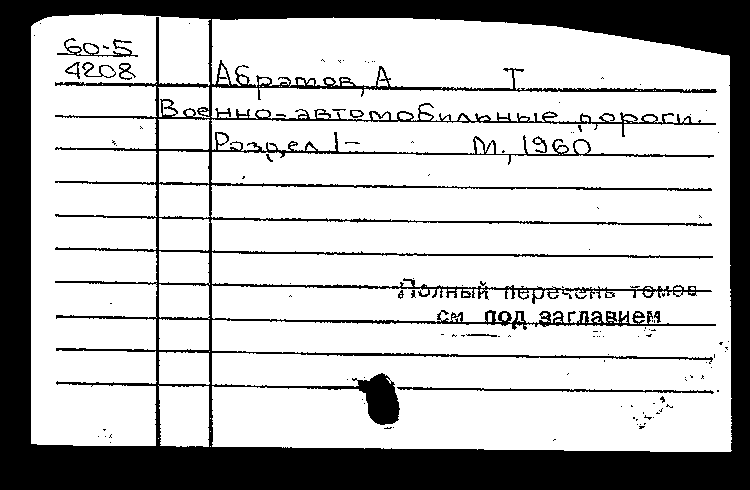 60-5
4208
Абрамов, А Т
Военно-автомобильные дороги.
Раздел 1- М., 1960
Полный перечень томов
см. под заглавием